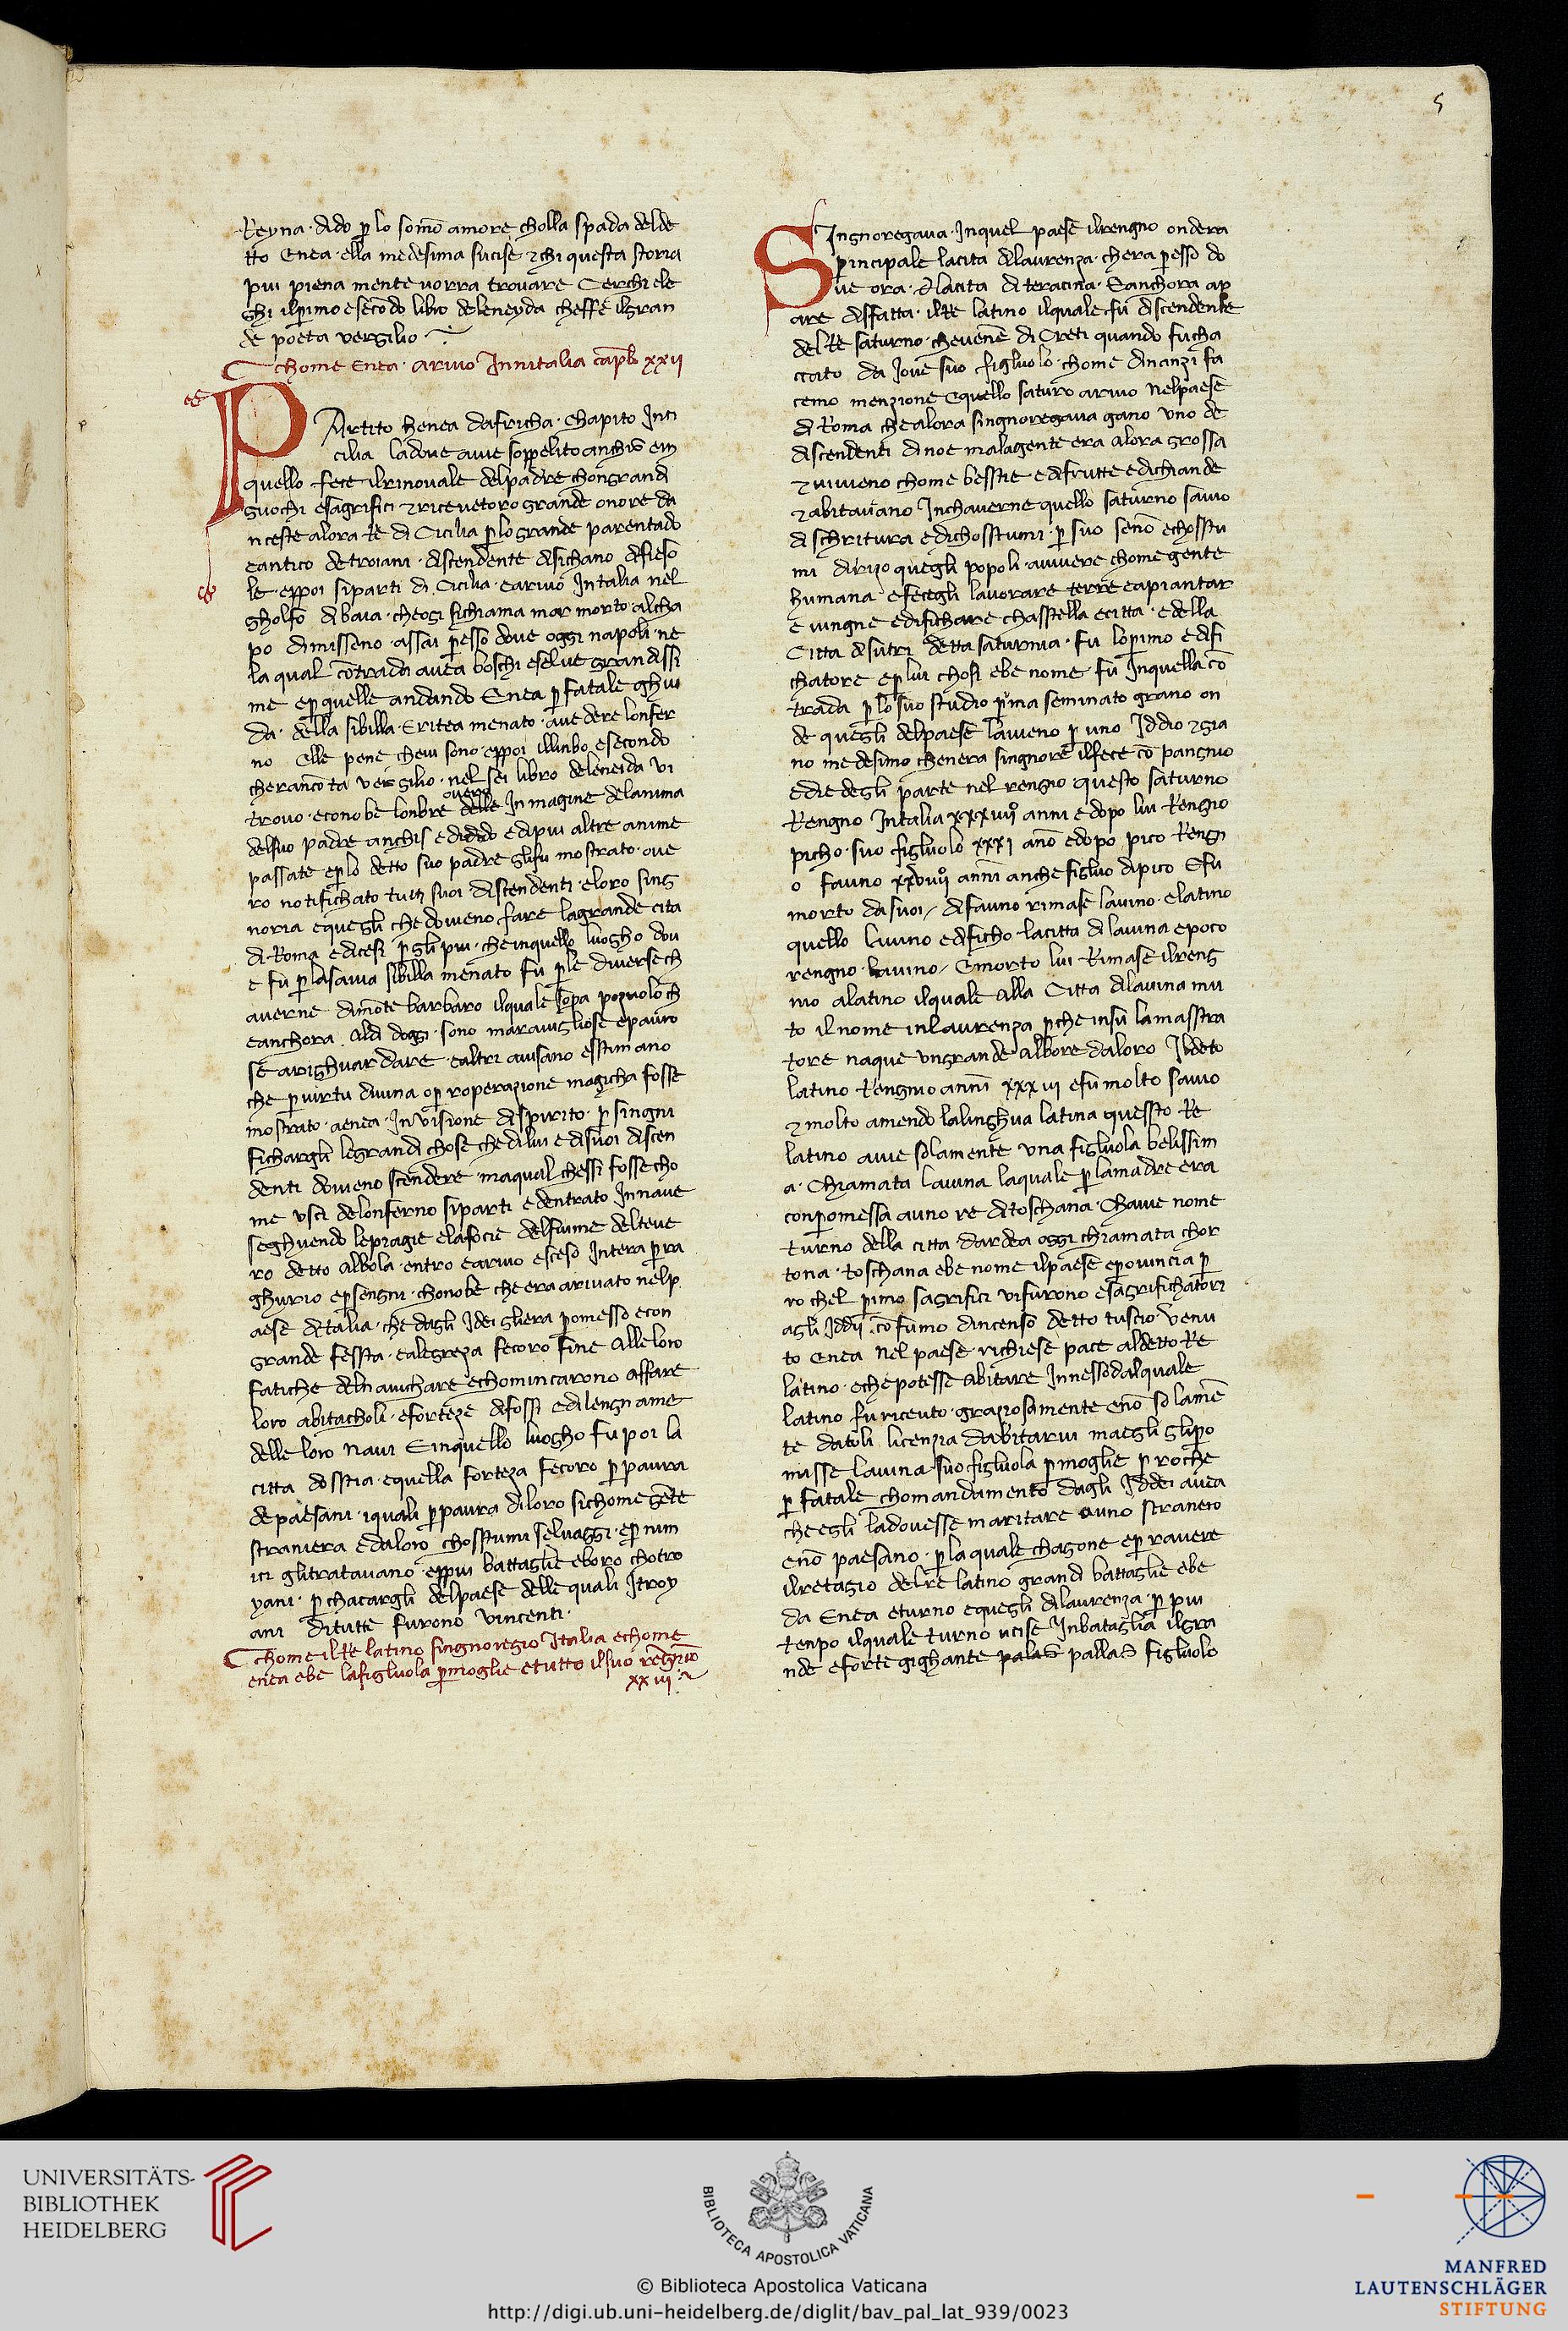 5
Reyna · dido p lo somō amore cholla spada delde
tto Enea · ella medesima sucise ⁊ chi questa storia
piu piena mente vorra trovare Cerchi ele
ghi ilprimo esecōdo libro deleneyda cheffe ilgran
de poeta vergilio
Chome Enea · arivo Innitalia caplo xxii
PArtito henea dafricha · Chapito Inci
cilia ladove avie soppelito anchise em
quello fece ilrinovale delpadre chongrandi
guochi esagrifici ⁊ ricevetoro grande onore da
nceste alora re di Cicilia plogrande parentado
eantico detroiani · discendente · disichano difieso
le · eppoi siparti di Cicilia · earivo Intalia nel
gholfo dibaia · cheogi sichiama mar morto alcha
po dimisseno assai presso dove oggi napoli · ne
la qual cōtrada avea boschi eselve grandissi
me epquelle andando Enea p fatale ghui
da · della sibilla · Eritea menato · avedere lonfer
no elle pene chevi sono · eppoi illinbo esecondo
cherancōta vergilio · nel sei libro deleneida vi
trovo · econobe lonbre overo delle Inmagine delanima
delsuo padre anchis edidido edipiu altre anime
passate eplo detto suo padre glifu mostrato · ove
ro notifichato tuti suoi discendenti · eloro sing
noria equegli chedoveno fare lagrande cita
di Roma edicesi pgli piu · cheinquello luogho dov
e fu plasavia sibilla menato fu ple diverse ch
averne dimōte barbaro ilquale sopra pozuolo ch
eanchora aldi doggi · sono maravigliose epauro
se arighuardare · ealtri avisano estimano
che pvirtu divina oproperazione magicha fosse
mostrato · aenea · Invisione dispirito · p singni
fichargli legrandi chose chedilui edisuoi discen
denti doveno scendere · maqual chessi fosse cho
me vsci delonferno siparti edentrato Innave
seghuendo lepiagie elafocie delfiume delteve
ro detto albola · entro earivo esceso Intera pra
ghurio epsengni · chonobe cheera arivato nelp
aese ditalia · che dagli Idei gliera pomesso econ
grande fessta · ealegreza fecoro fine alleloro
fatiche delnavichare echomincarono affare
loro abitacholi · eforteze difossi edilengname
delle loro navi Einquello luogho fu poi la
citta dosstia · equella forteza fecoro ppaura
depaesani · iquali ppaura diloro sichome gēte
straniera edaloro chosstumi selvaggi · ep nim
ici glitratavano · eppiu battaglie eboro chotro
yani · pchacargli delpaese delle quali Itroy
ani ditutte furono vincenti ·
Chome ilre latino singnoregio Italia echome
enea ebe lafigluola pmoglie etutto ilsuo rengnio
xxiii
SIngnoregava · Inquel paese ilrengno ondera
principale lacita dilaurenza · chera presso do
ve ora · e lacita di teracina · Eanchora ap
are disfatta · ilre latino ilquale · fu discendente
delre saturno · chevene di Creti quando fucha
cciato da Jove suo figluolo · chome dinanzi fa
cemo menzione Equello saturo arivo nelpaese
di Roma chealora singnoregava gano vno de
discendenti dinoe malagente era alora grossa
⁊ viveno chome besstie edifrutte edichiande
⁊ abitavano Inchaverne quello saturno savio
di schritura edichosstumi · p suo senō echosstu
mi dirizo quegli popoli · avivere chome gente
humana efecegli lavorare terre eapiantar
e vingne edifichare chasstella ecitta · edella
Citta disutri detta saturnia · fu loprimo edifi
chatore eplui chosi ebe nome · fu Inquella cō
trada plosuo studio prima seminato grano on
de quegli delpaese laveno p uno Iddio ⁊gia
no medesimo chenera singnore ilfece cō pangnio
edie degli parte nel rengno · questo saturno
Rengno Intalia xxxiiii anni edopo lui Rengio
picho · suo figluolo xxxi anō edopo pico Rengn
o fauno xxviiii anni anche figluo dipico Efu
morto dasuoi / difauno rimase lavino · elatino
quello lavino edificho lacitta di lavina epoco
rengno lavino / Emorto lui Rimase ilreng
nio alatino ilquale alla Citta dilavina mu
to ilnome inlaurenza pche insu lamasstra
tore naque ungrande albore daloro Ildeto
latino Rengnio anni xxxii efumolto savio
⁊ molto amendo lalinghua latina quessto Re
latino avie solamente vna figluola belissim
a · Chiamata lavina laquale plamadre era
conpomessa auno re ditoschana · Chavie nome
turno della citta dardea oggi chiamata chor
tona · toschana ebe nome ilpaese epovincia p
ro chel primo sagrifici vifurono esagrifichatori
agli Iddii · cō fumo dincenso detto tuscio Venu
to Enea nel paese · richiese pace aldetto Re
latino · echepotesse abitare Innessodalquale
latino fu ricevto · graziosamente enō solamē
te datoli licenzia dabitarvi maegli glipro
misse lavina suo figluola pmoglie proche
p fatale chomandamento dagli Iddei avea
cheegli ladovesse maritare auno straniero
enō paesano · plaquale chagone ep ravere
ilretagio delre latino grandi battaglie ebe
da Enea eturno equegli dilaurenza · p piu
tenpo ilquale turno ucise Inbataglia ilgra
nde eforte gighante palas pallas figluolo
UNIVERSITÄTS-
BIBLIOTHEK
HEIDELBERG
BIBLIOTECA APOSTOLICA VATICANA
© Biblioteca Apostolica Vaticana
http://digi.ub.uni-heidelberg.de/diglit/bav_pal_lat_939/0023
MANFRED
LAUTENSCHLÄGER
STIFTUNG